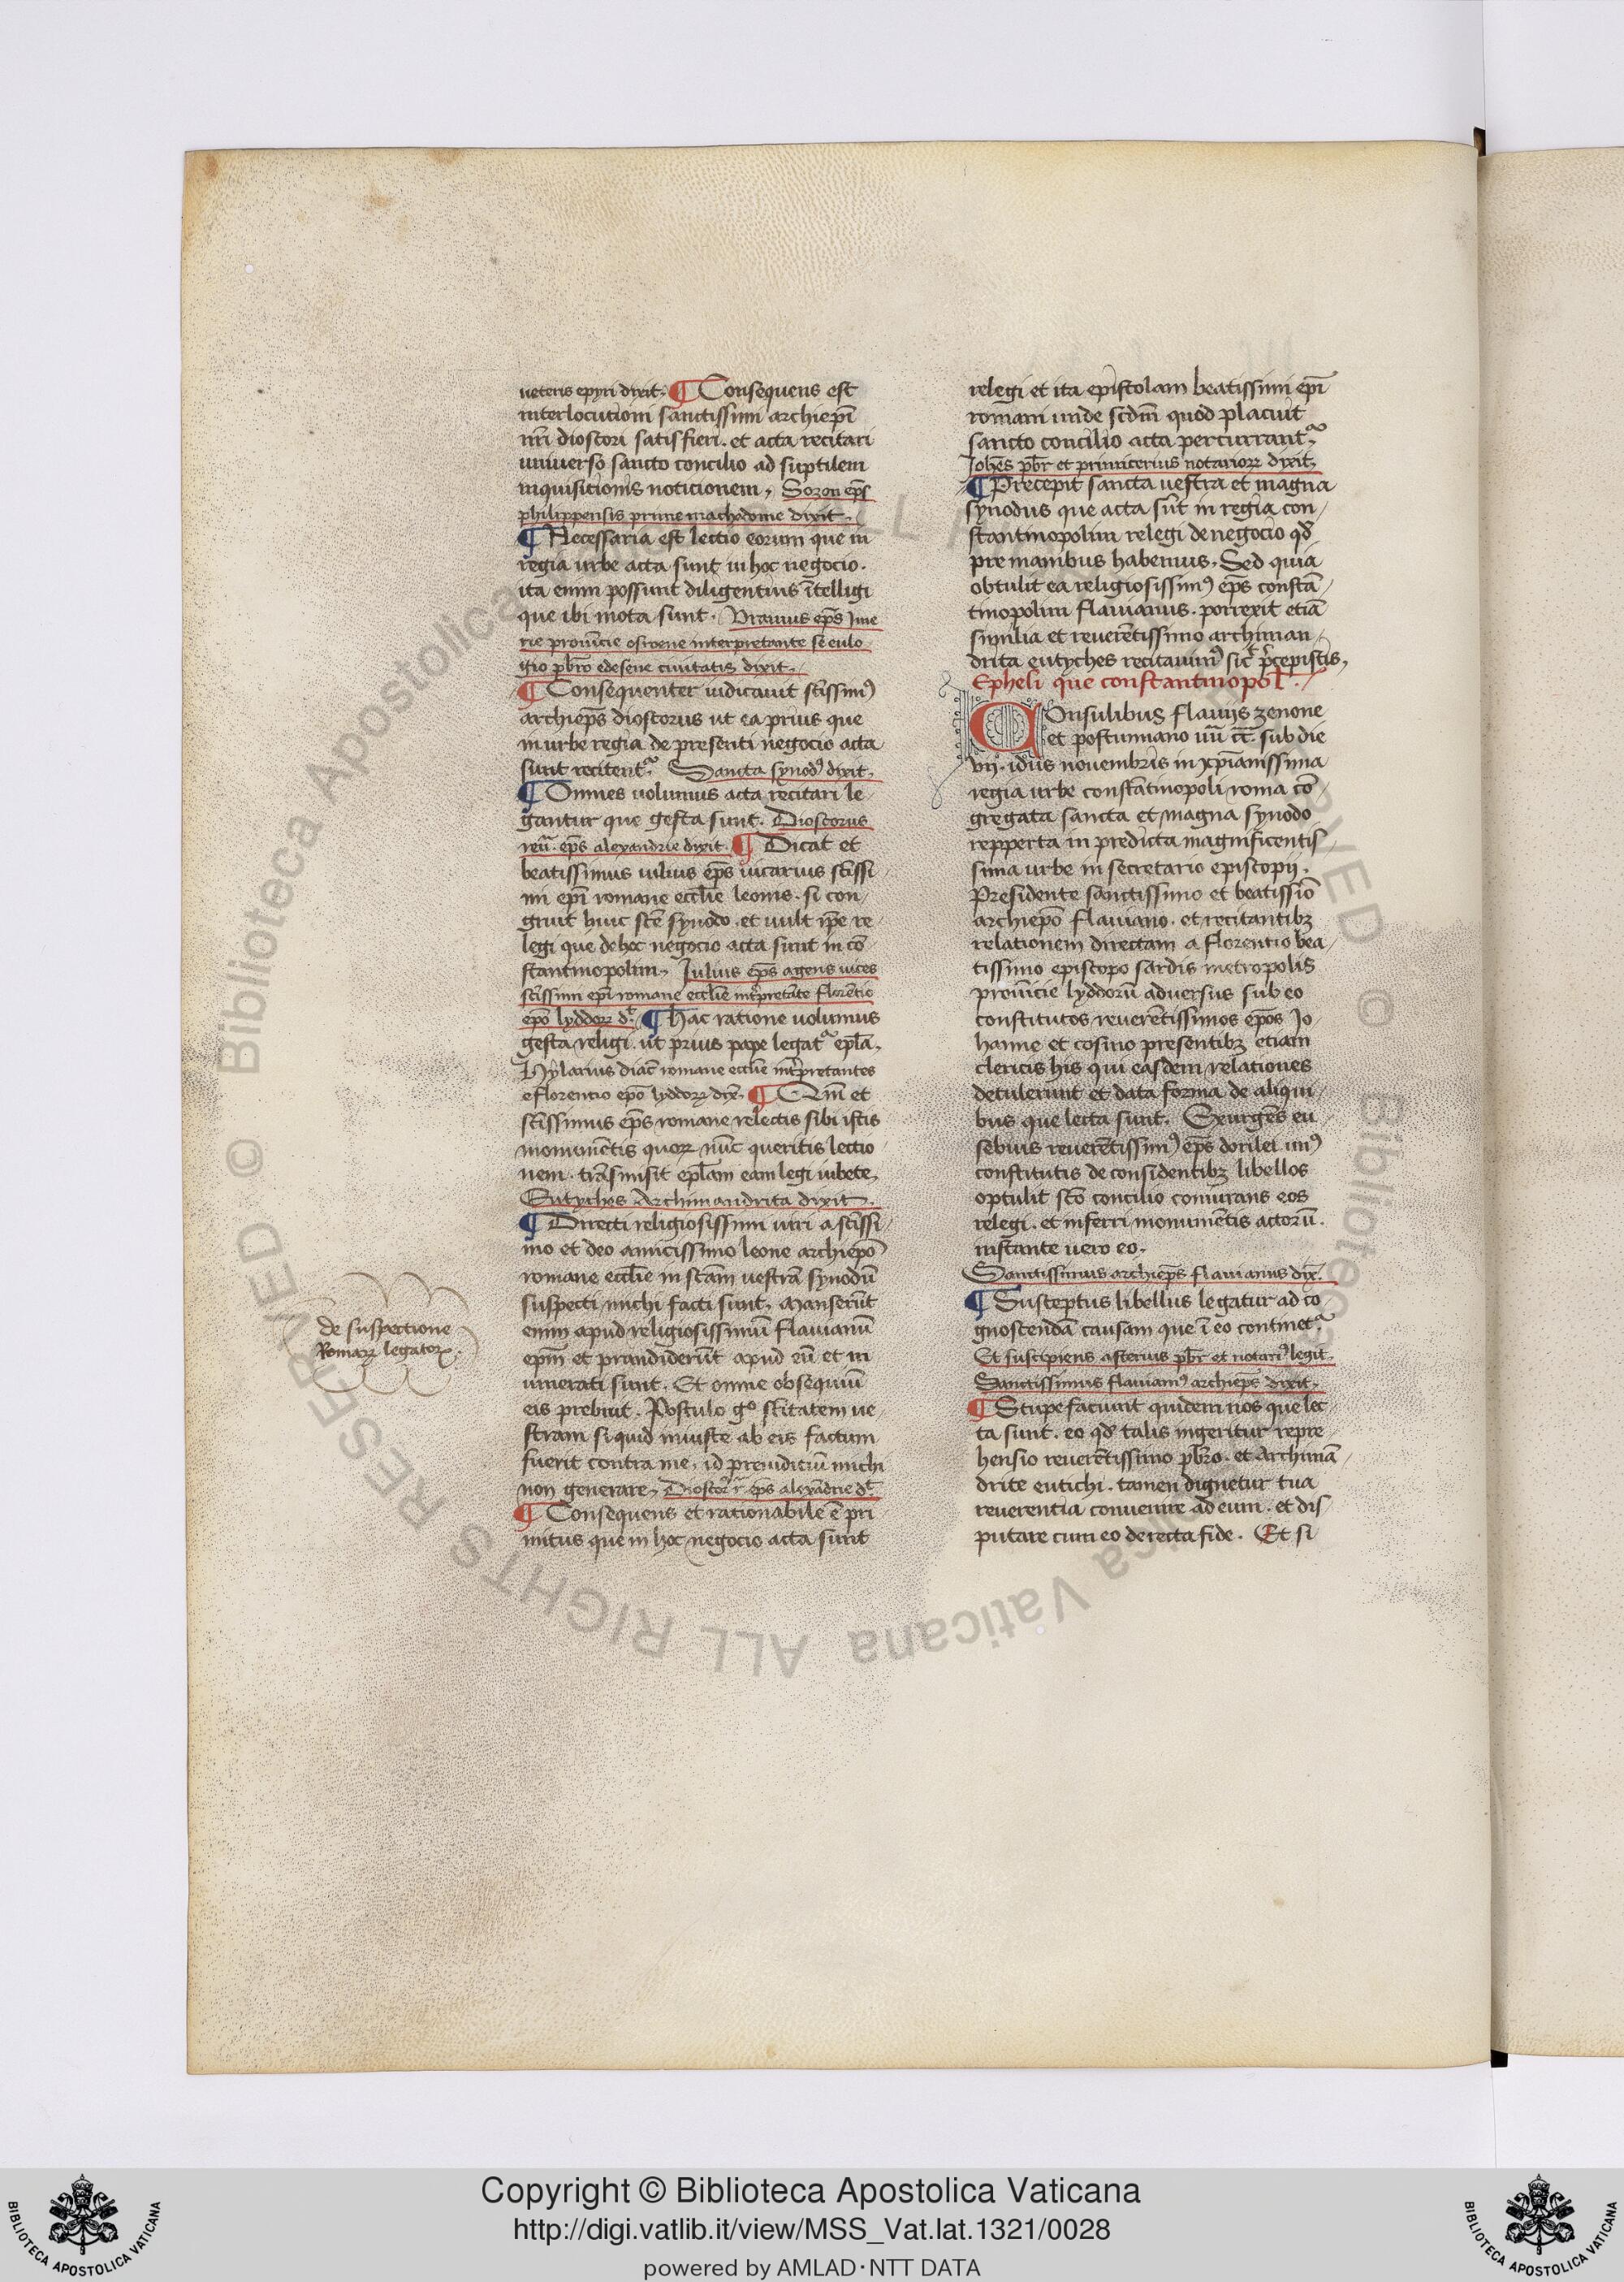 ueteris epyri dixit. ¶ Consequens est
interlocutioni sanctissimi archiepi̅
nr̅i dioscori satisfieri. et acta recitari
uniuerso sancto concilio ad suptilem
inquisitionis noticionem, Sozon ep̅s
philippensis prime machedonie dixit.
¶ Necessaria est lectio eorum que in
regia urbe acta sunt in hoc negocio.
ita enim possunt diligentius i̅telligi
que ibi mota sunt. Uranius ep̅s Ime
rie prouincie osroene interpretante se eulo
gio pb̅ro edesene ciuitatis dixit.
¶ Consequenter iudicauit sc̅issimꝰ
archiep̅s dioscorus ut ea prius que
in urbe regia de presenti negocio acta
sunt recitent᷑. Sancta synodꝰ dixit.
¶ Omnes uolumus acta recitari le
gantur que gesta sunt. Dioscorus
reu̅. ep̅s alexandrie dixit. ¶ Dicat et
beatissimus iulius ep̅s uicarius sc̅issi
mi epi̅ romane eccl̅ie leonis. si con
gruit huic sc̅e synodo. et uult ip̅e re
legi que de hoc negocio acta sunt in co̅
stantinopolim, Iulius ep̅s agens uices
sc̅issimi epi̅ romane eccl̅ie int̅pretante flore̅tio
epo̅ lyddoꝝ dt̅. ¶ hac ratione uolumus
gesta religi. ut prius pape legat᷑ epl̅a.
Hylarius diac̅ romane eccl̅ie int̅pretantes
e florentio epo̅ lyddoꝝ dix̅. ¶ Qm̅ et
sc̅issimus ep̅s romane relectis sibi istis
monume̅tis quoꝝ nu̅c queritis lectio
nem. tra̅smisit epl̅am eam legi iubete,
Eutyches Archimandrita dixit.
¶ Directi religiosissimi uiri a sc̅issi
mo et deo amicissimo leone archiepo̅
romane eccl̅ie in sc̅am uestra̅ synodu̅
suspecti michi facti sunt, Manseru̅t
enim apud religiosissimu̅ flauianu̅
epm̅ et prandideru̅t apud eu̅ et m
unerati sunt. Et omne obsequiu̅
eis prebuit. Postulo gº sc̅itatem ue
stram si quid iniuste ab eis factum
fuerit contra me, id preiudiciu̅ michi
non generare, Dioscorꝰ r. ep̅s alexa̅drie dt̅.
¶ Consequens et rationabile e̅ pri
mitus que in hoc negocio acta sunt
de suspectione
Romaꝝ legatoꝝ.
relegi et ita epistolam beatissimi epi̅
romani unde scdm̅ quod placuit
sancto concilio acta percurrant᷑.
Ioh̅es pb̅r et primicerius notarioꝝ dixit,
¶ Precepit sancta uestra et magna
synodus que acta su̅t in regia con
stantinopolim relegi de negocio qd̅
pre manibus habemus. Sed quia
obtulit ea religiosissimꝰ ep̅s consta̅
tinopolim flauianus. porrexit etia̅
similia et reuere̅tissimo archiman
drita eutyches recitauimꝰ sic̅ p̅cepistis,
Epheli que constantinopol̅.
Consulibus flauijs zenone
et postumiano uu̅ cc̅. sub die
vij. idus nouembris in xp̅ianissima
regia urbe consta̅tinopoli roma co̅
gregata sancta et magna synodo
repperta in predicta magnificentis
sima urbe in secretario episcopij.
Presidente sanctissimo et beatissi̅o
archiepo̅ flauiano. et recitantibꝫ
relationem directam a florentio bea
tissimo episcopo sardis metropolis
prouincie lyddoru̅ aduersus sub eo
constitutos reuere̅tissimos epo̅s Io
hanne et cosino presentibꝫ etiam
clericis his qui easdem relationes
detulerunt et data forma de aliqui
bus que lecta sunt. Exurge̅s eu
sebius reuere̅tissimꝰ ep̅s dorilei unꝰ
constitutis de considentibꝫ libellos
optulit sc̅o concilio coniurans eos
relegi. et inferri monume̅tis actoru̅.
instante uero eo.
Sanctissimus archiep̅s flauianus dix̅.
¶ Susceptus libellus legatur ad co
gnoscenda̅ causam que i̅ eo continet᷑.
Et suscipiens asterius pb̅r et notariꝰ legit.
Sanctissimus flauianꝰ archiep̅s dixit.
¶ Stupefaciunt quidem nos que lec
ta sunt. eo qd̅ talis ingeritur repre
hensio reuere̅tissimo pb̅ro. et Archima̅
drite eutichi. tamen dignetur tua
reuerentia conuenire ad eum. et dis
putare cum eo de recta fide. Et si
Copyright © Biblioteca Apostolica Vaticana
http://digi.vatlib.it/view/MSS_Vat.lat.1321/0028
powered by AMLAD·NTT DATA